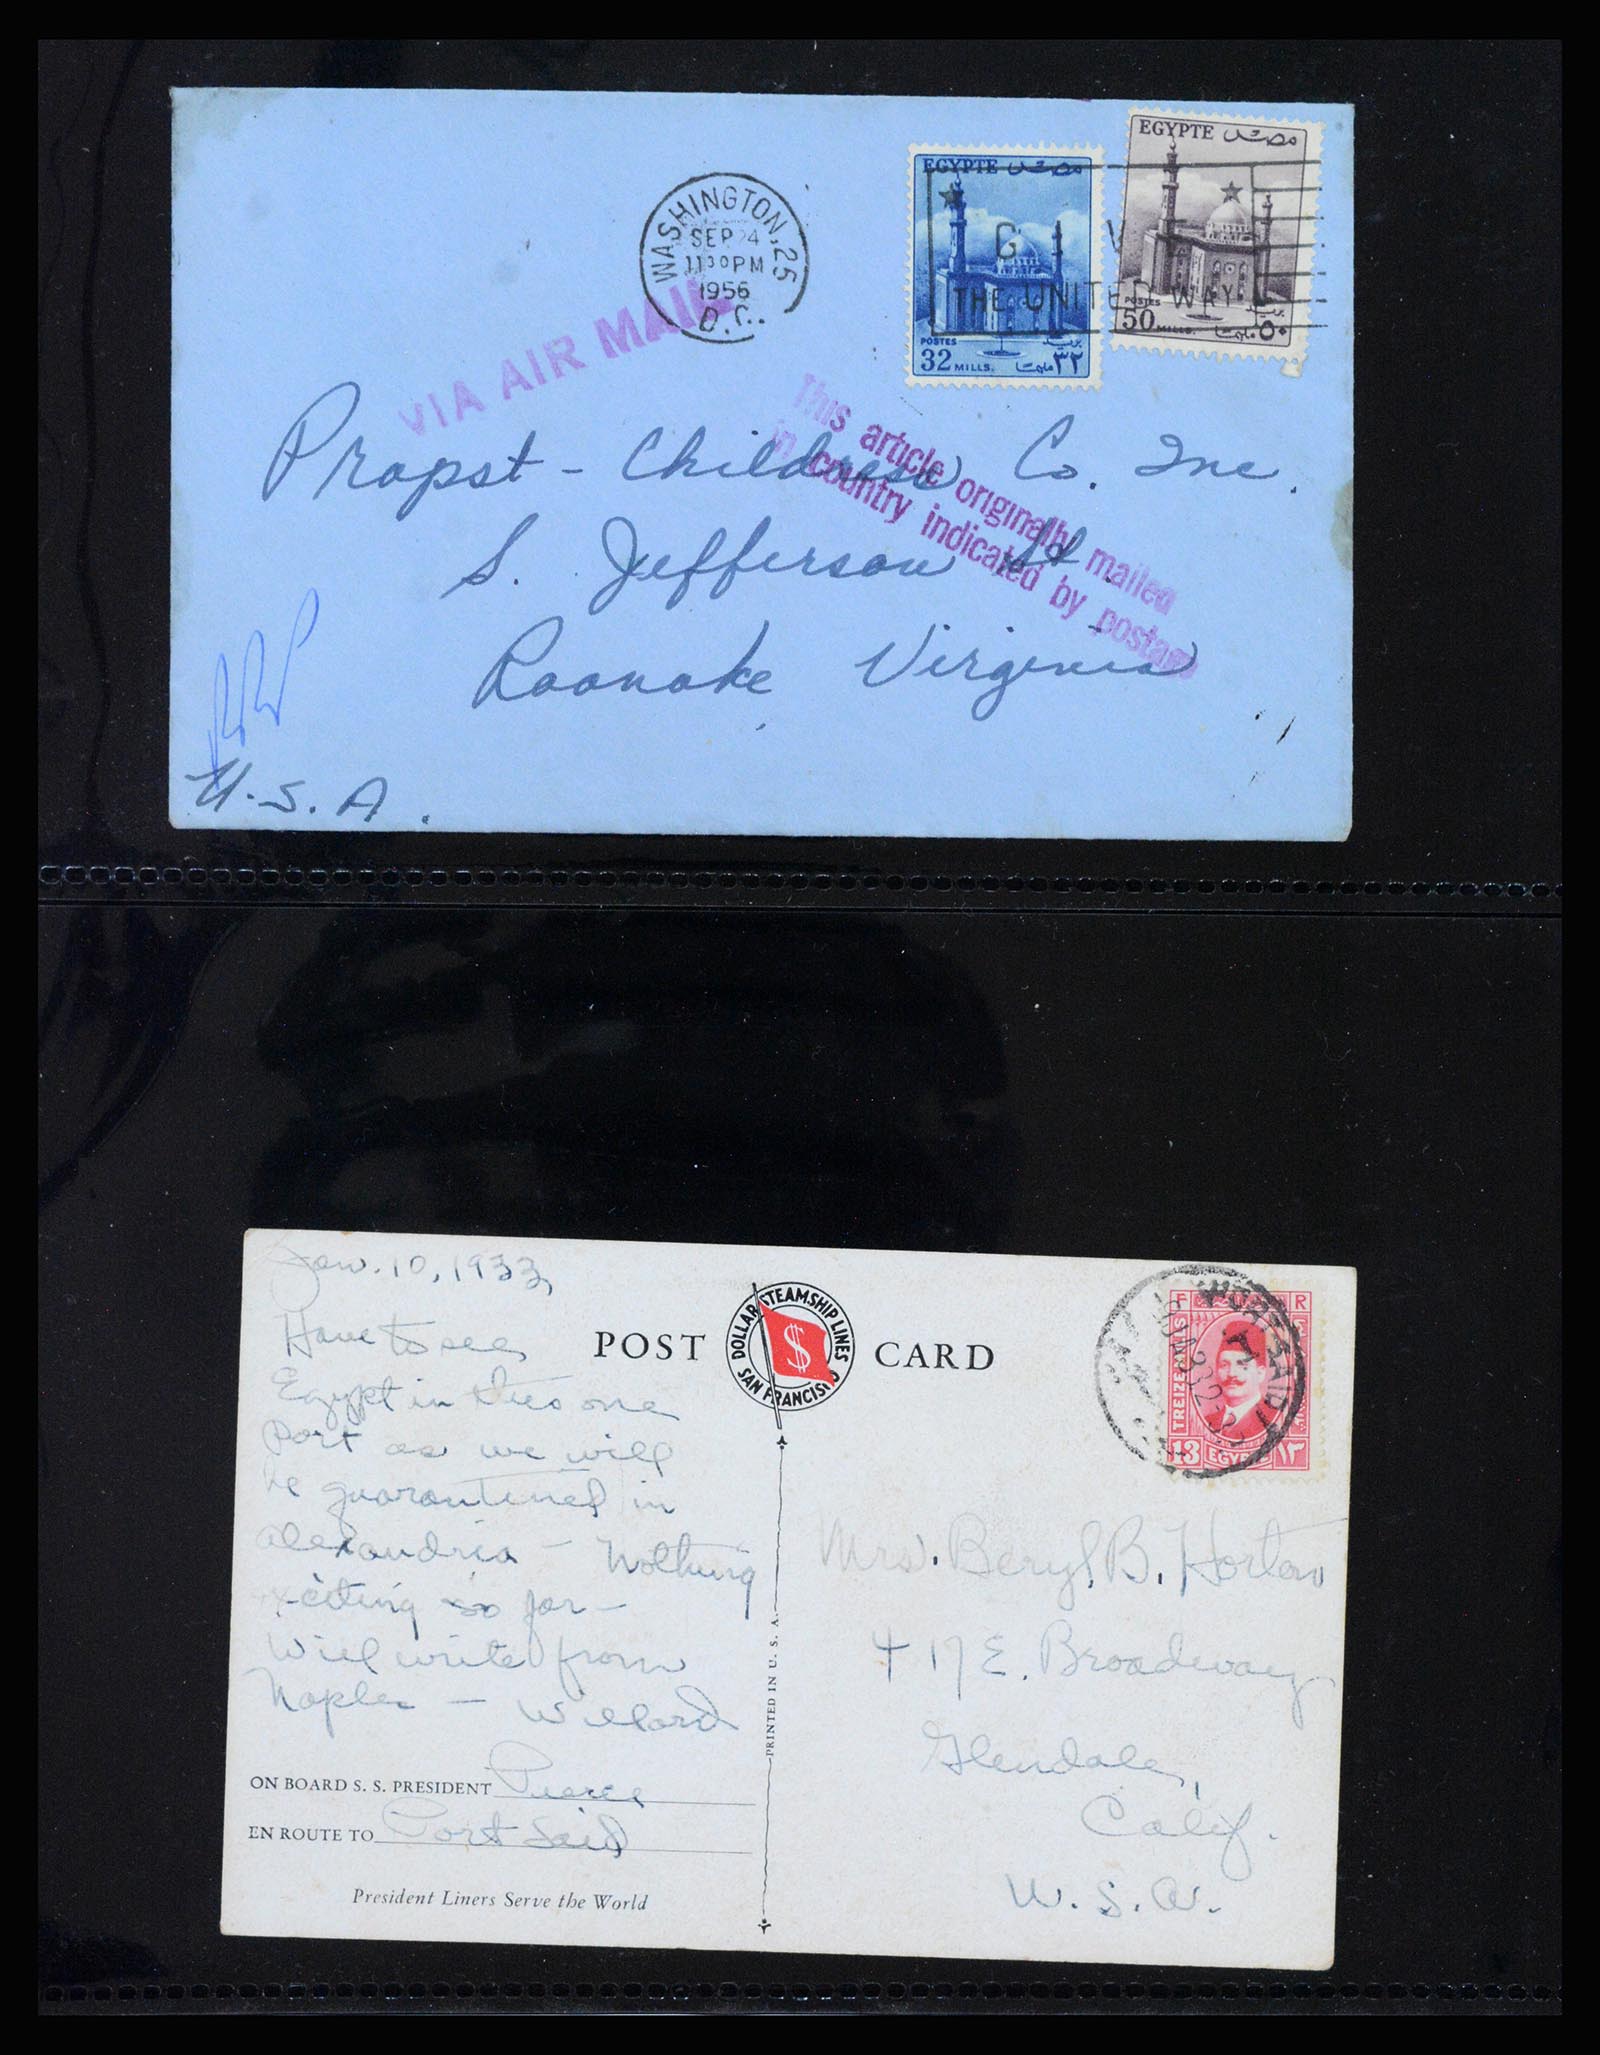 EGYPTE مصر
EGYPTE مصر
WASHINGTON, 25
SEP 24
1130 PM
1956
D.C.
GIVE
THE UNITED WAY
POSTES بريد
50 MILLS. مليمات ٥٠
POSTES بريد
32 MILLS. مليمات ٣٢
VIA AIR MAIL
This article originally mailed
in country indicated by postage
Propst - Childress Co. Inc.
S. Jefferson St.
Roanoke Virginia
U.S.A.
Jan. 10, 1933,
Have to see
Egypt in this one
Port as we will
be quarantined in
Alexandria - Nothing
exciting so far -
Will write from
Naples - Willard
ON BOARD S. S. PRESIDENT Pierce
EN ROUTE TO Port Said
President Liners Serve the World
POST CARD
DOLLAR STEAMSHIP LINES
$
SAN FRANCISCO
PRINTED IN U. S. A.
PORT SAID
F R
TREIZE MILLS
13 EGYPTE ١٣
Mrs. Beryl B. Horton
417 E. Broadway
Glendale,
Calif.
U.S.A.